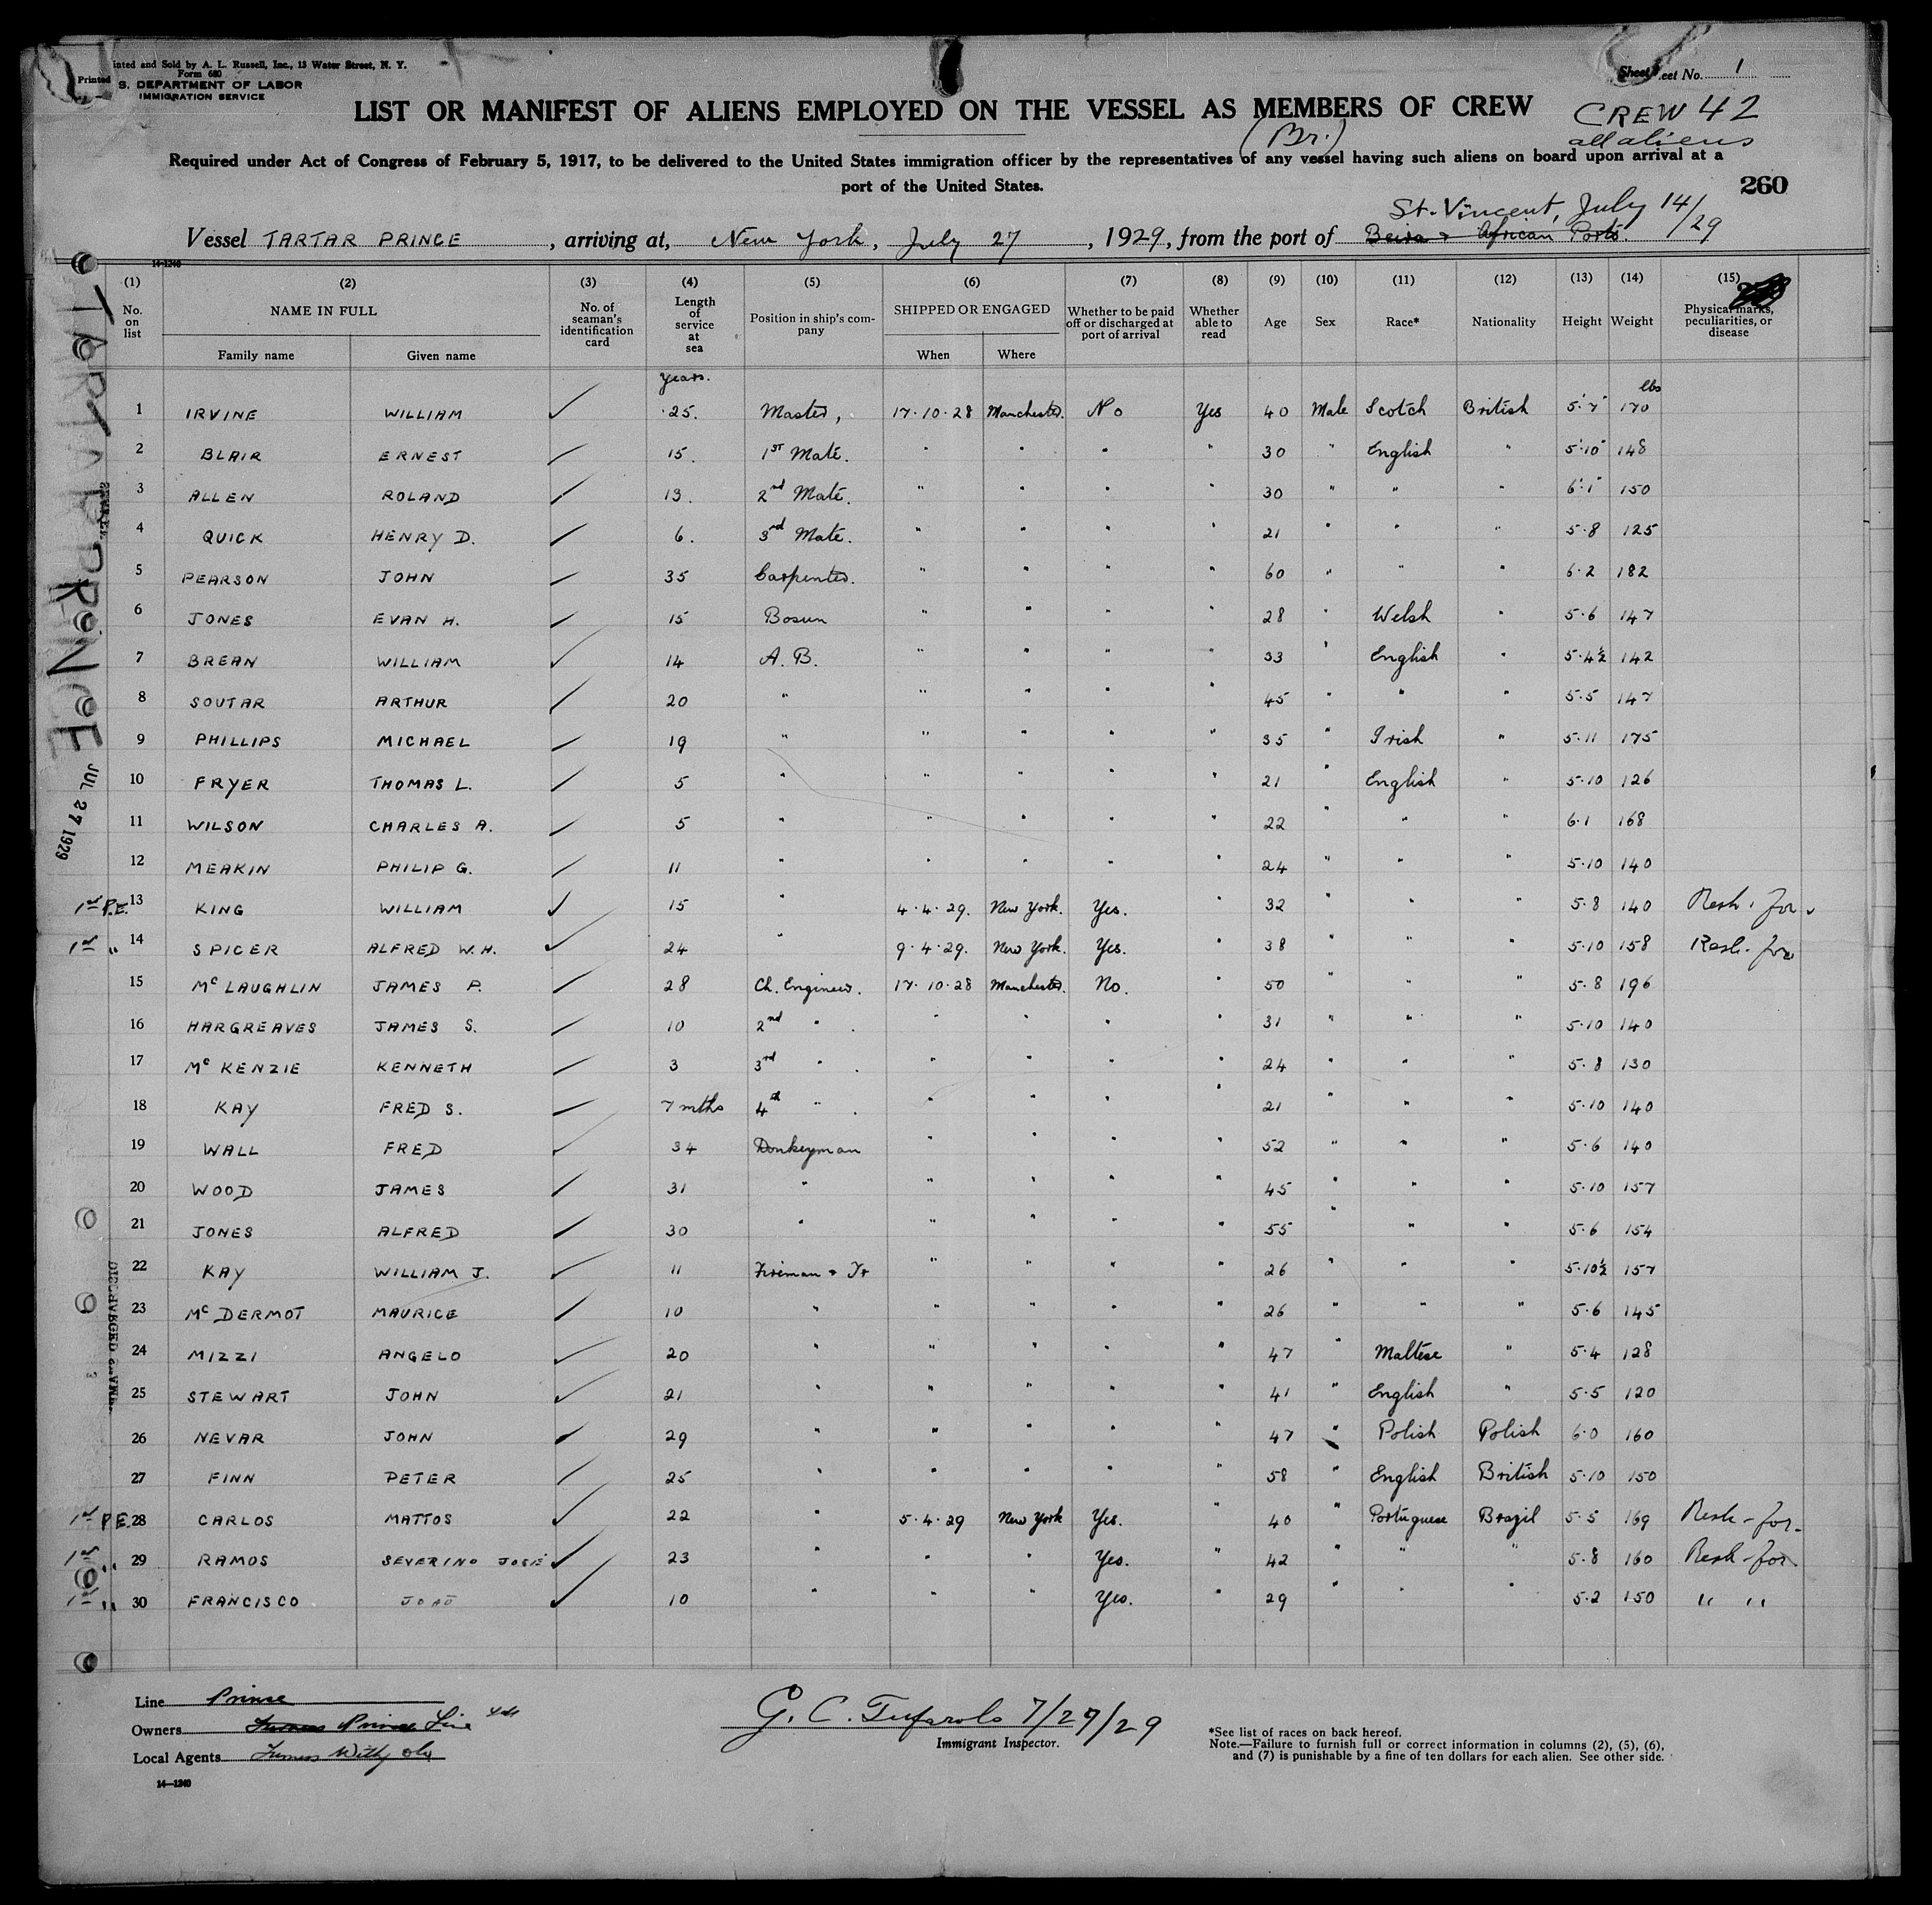 inted and Sold by A. L. Russell, Inc., 13 Water Street, N. Y.
Form 680
Printed
S. DEPARTMENT OF LABOR
IMMIGRATION SERVICE
Sheet eet No. 1
LIST OR MANIFEST OF ALIENS EMPLOYED ON THE VESSEL AS MEMBERS OF CREW
CREW 42
all aliens
(Br.)
Required under Act of Congress of February 5, 1917, to be delivered to the United States immigration officer by the representatives of any vessel having such aliens on board upon arrival at a
port of the United States.
260
St. Vincent, July 14/29
Vessel TARTAR PRINCE, arriving at, New York, July 27, 1929, from the port of Beira & African Ports.
14-1240
(1) (2) (3) (4) (5) (6) (7) (8) (9) (10) (11) (12) (13) (14) (15)
No. on list NAME IN FULL Family name Given name No. of seaman's identification card Length of service at sea Position in ship's company SHIPPED OR ENGAGED When Where Whether to be paid off or discharged at port of arrival Whether able to read Age Sex Race* Nationality Height Weight Physical marks, peculiarities, or disease
years. lbs
1 IRVINE WILLIAM ✓ 25. Master, 17.10.28 Manchester. No Yes 40 Male Scotch British 5'7" 170
2 BLAIR ERNEST ✓ 15. 1st Mate. " " " " 30 " English " 5'10" 148
3 ALLEN ROLAND ✓ 13. 2nd Mate. " " " " 30 " " " 6'1" 150
4 QUICK HENRY D. ✓ 6. 3rd Mate. " " " " 21 " " " 5.8 125
5 PEARSON JOHN ✓ 35 Carpenter. " " " " 60 " " " 6.2 182
6 JONES EVAN H. ✓ 15 Bosun " " " " 28 " Welsh " 5.6 147
7 BREAN WILLIAM ✓ 14 A. B. " " " " 33 " English " 5.4½ 142
8 SOUTAR ARTHUR ✓ 20 " " " " " 45 " " " 5.5 147
9 PHILLIPS MICHAEL ✓ 19 " " " " " 35 " Irish " 5.11 175
10 FRYER THOMAS L. ✓ 5 " " " " " 21 " English " 5.10 126
11 WILSON CHARLES A. ✓ 5 " " " " " 22 " " " 6.1 168
12 MEAKIN PHILIP G. ✓ 11 " " " " " 24 " " " 5.10 140
1st P.E. 13 KING WILLIAM ✓ 15 " 4.4.29. New York. Yes. " 32 " " " 5.8 140 Resh. for.
1st " 14 SPICER ALFRED W.H. ✓ 24 " 9.4.29. New York. Yes. " 38 " " " 5.10 158 Resh. for
15 McLAUGHLIN JAMES P. ✓ 28 Ch. Engineer. 17.10.28 Manchester. No. " 50 " " " 5.8 196
16 HARGREAVES JAMES S. ✓ 10 2nd " . " " " " 31 " " " 5.10 140
17 McKENZIE KENNETH ✓ 3 3rd " . " " " " 24 " " " 5.8 130
18 KAY FRED S. ✓ 7 mths 4th " . " " " " 21 " " " 5.10 140
19 WALL FRED ✓ 34 Donkeyman " " " " 52 " " " 5.6 140
20 WOOD JAMES ✓ 31 " " " " " 45 " " " 5.10 157
21 JONES ALFRED ✓ 30 " " " " " 55 " " " 5.6 154
22 KAY WILLIAM J. ✓ 11 Fireman & Tr " " " " 26 " " " 5.10½ 157
23 McDERMOT MAURICE ✓ 10 " " " " " 26 " " " 5.6 145
24 MIZZI ANGELO ✓ 20 " " " " " 47 " Maltese " 5.4 128
25 STEWART JOHN ✓ 21 " " " " " 41 " English " 5.5 120
26 NEVAR JOHN ✓ 29 " " " " " 47 " Polish Polish 6.0 160
27 FINN PETER ✓ 25 " " " " " 58 " English British 5.10 150
1st P.E. 28 CARLOS MATTOS ✓ 22 " 5.4.29 New York Yes. " 40 " Portuguese Brazil 5.5 169 Resh - for.
1st " 29 RAMOS SEVERINO JOSE ✓ 23 " " " Yes. " 42 " " " 5.8 160 Resh - for.
1st " 30 FRANCISCO JOAO ✓ 10 " " " Yes. " 29 " " " 5.2 150 " "
TARTAR PRINCE
JUL 27 1929
Line Prince
Owners Furness Prince Line Ltd
Local Agents Furness Withy
14—1240
G. C. Tufarolo 7/27/29
Immigrant Inspector.
*See list of races on back hereof.
Note.—Failure to furnish full or correct information in columns (2), (5), (6),
and (7) is punishable by a fine of ten dollars for each alien. See other side.